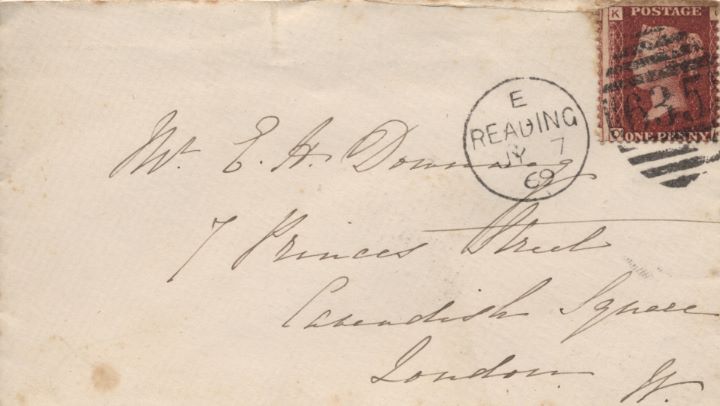 K POSTAGE
635
ONE PENNY
E
READING
JY 7
69
Mr E. H.
7 Princes Street
Cavendish Square
London W.